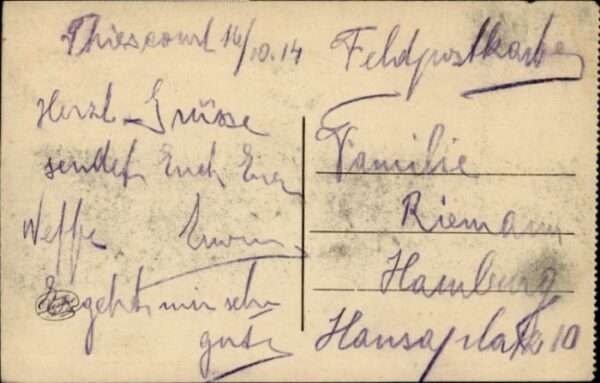 Thiescourt 16/10.14
Herzl. Grüsse
sendet Euch Euer
Neffe Erwin.
Es geht mir sehr
gut.
Feldpostkarte
Familie
Riemann
Hamburg
Hansaplatz 10